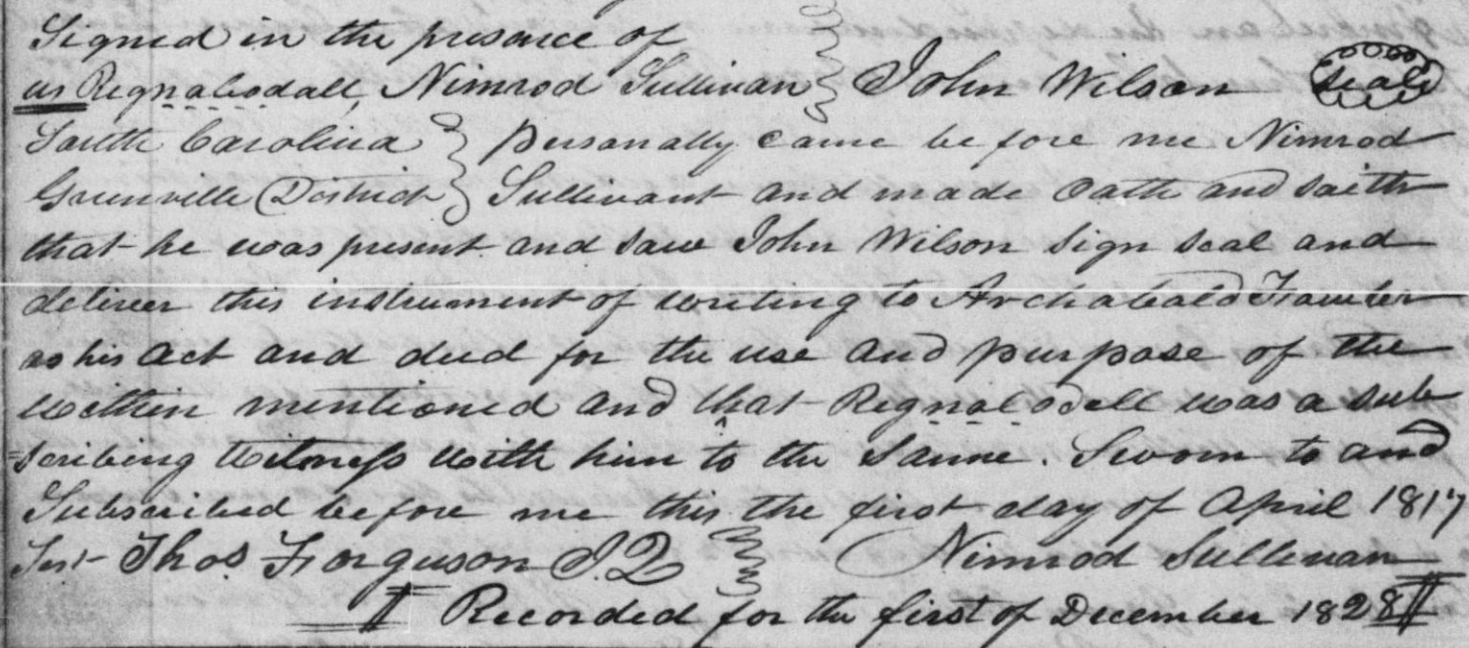 Signed in the presence of
us Regnalodall, Nimrod Sullivan John Wilson Seal
South Carolina Personally came before me Nimrod
Greenville District Sullivant and made Oath and saith
that he was present and saw John Wilson sign seal and
deliver this instrument of writing to Archabald
as his Act and deed for the use and purpose of the
within mentioned and that Regnal odell was a sub
scribing Witness with him to the Same. Sworn to and
Subscribed before me this the first day of April 1817
Test Thos Ferguson J.Q Nimrod Sullivan
Recorded for the first of December 1828